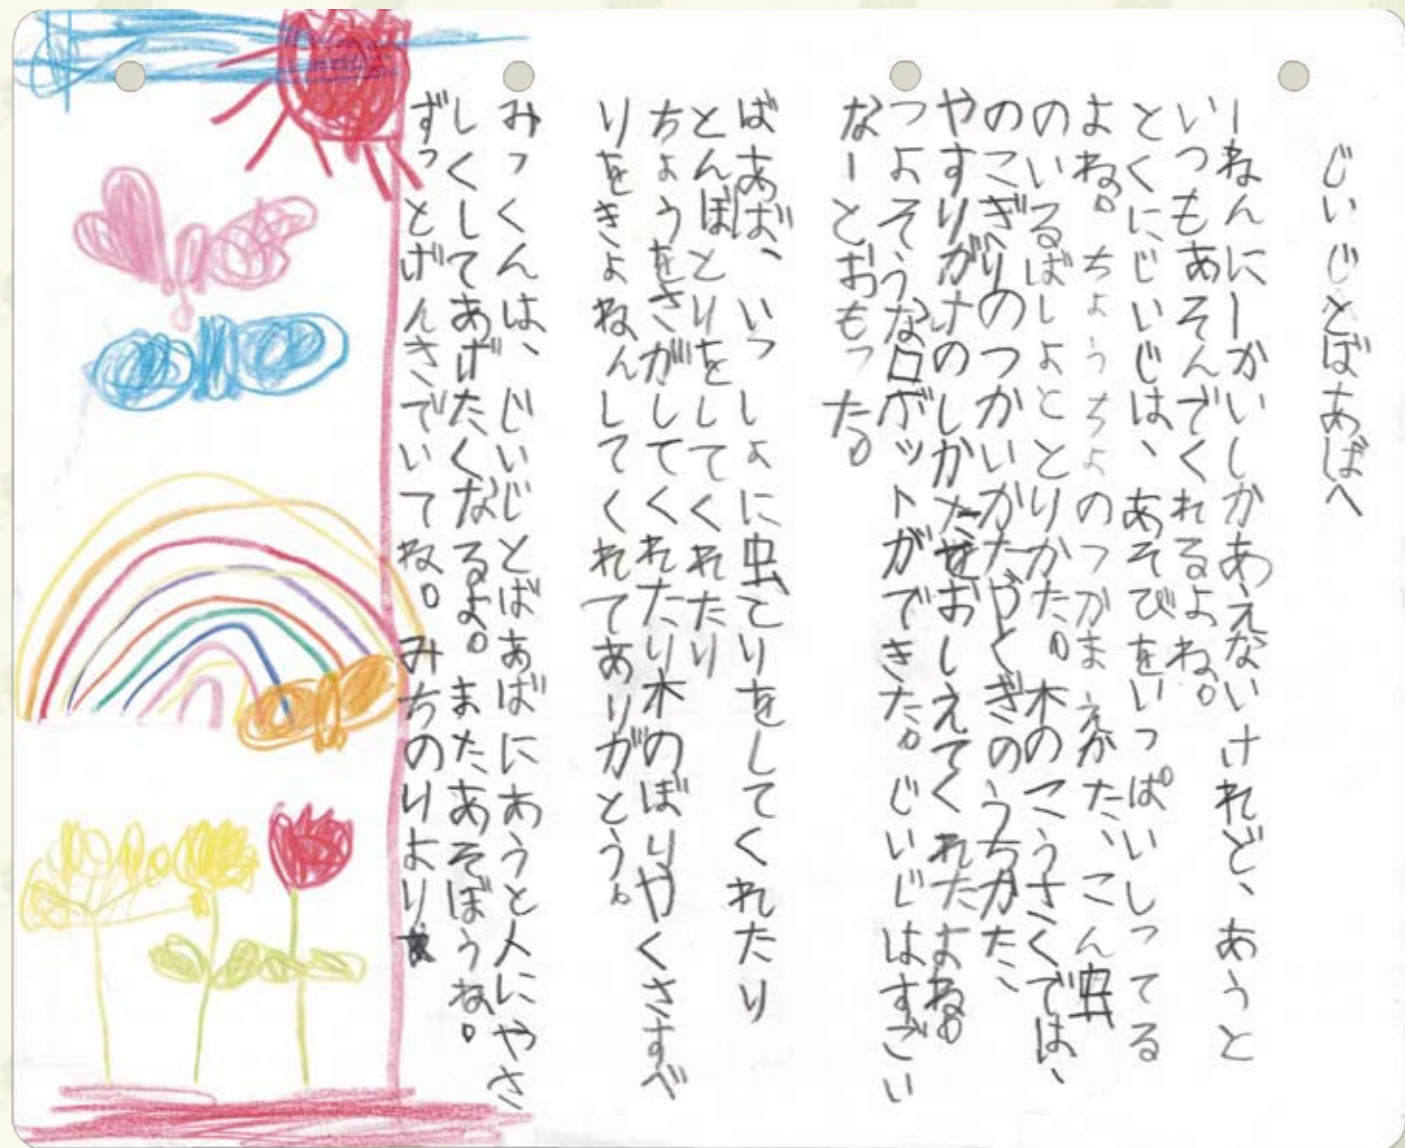 じいじとばあばへ
一ねんに一かいしかあえないけれど、あうと
いつもあそんでくれるよね。
とくにじいじは、あそびをいっぱいしってる
よね。ちょうちょのつかまえかた、こん虫
のいるばしょととりかた。木のこうさくでは、
のこぎりのつかいかたやくぎのうちかた、
やすりがけのしかたをおしえてくれたよね。
つよそうなロボットができた。じいじはすごい
なーとおもった。
ばあば、いっしょに虫とりをしてくれたり
とんぼとりをしてくれたり
ちょうをさがしてくれたり木のぼりやくさすべ
りをきょねんしてくれてありがとう。
みっくんは、じいじとばあばにあうと人にやさ
しくしてあげたくなるよ。またあそぼうね。
ずっとげんきでいてね。みちのりより★